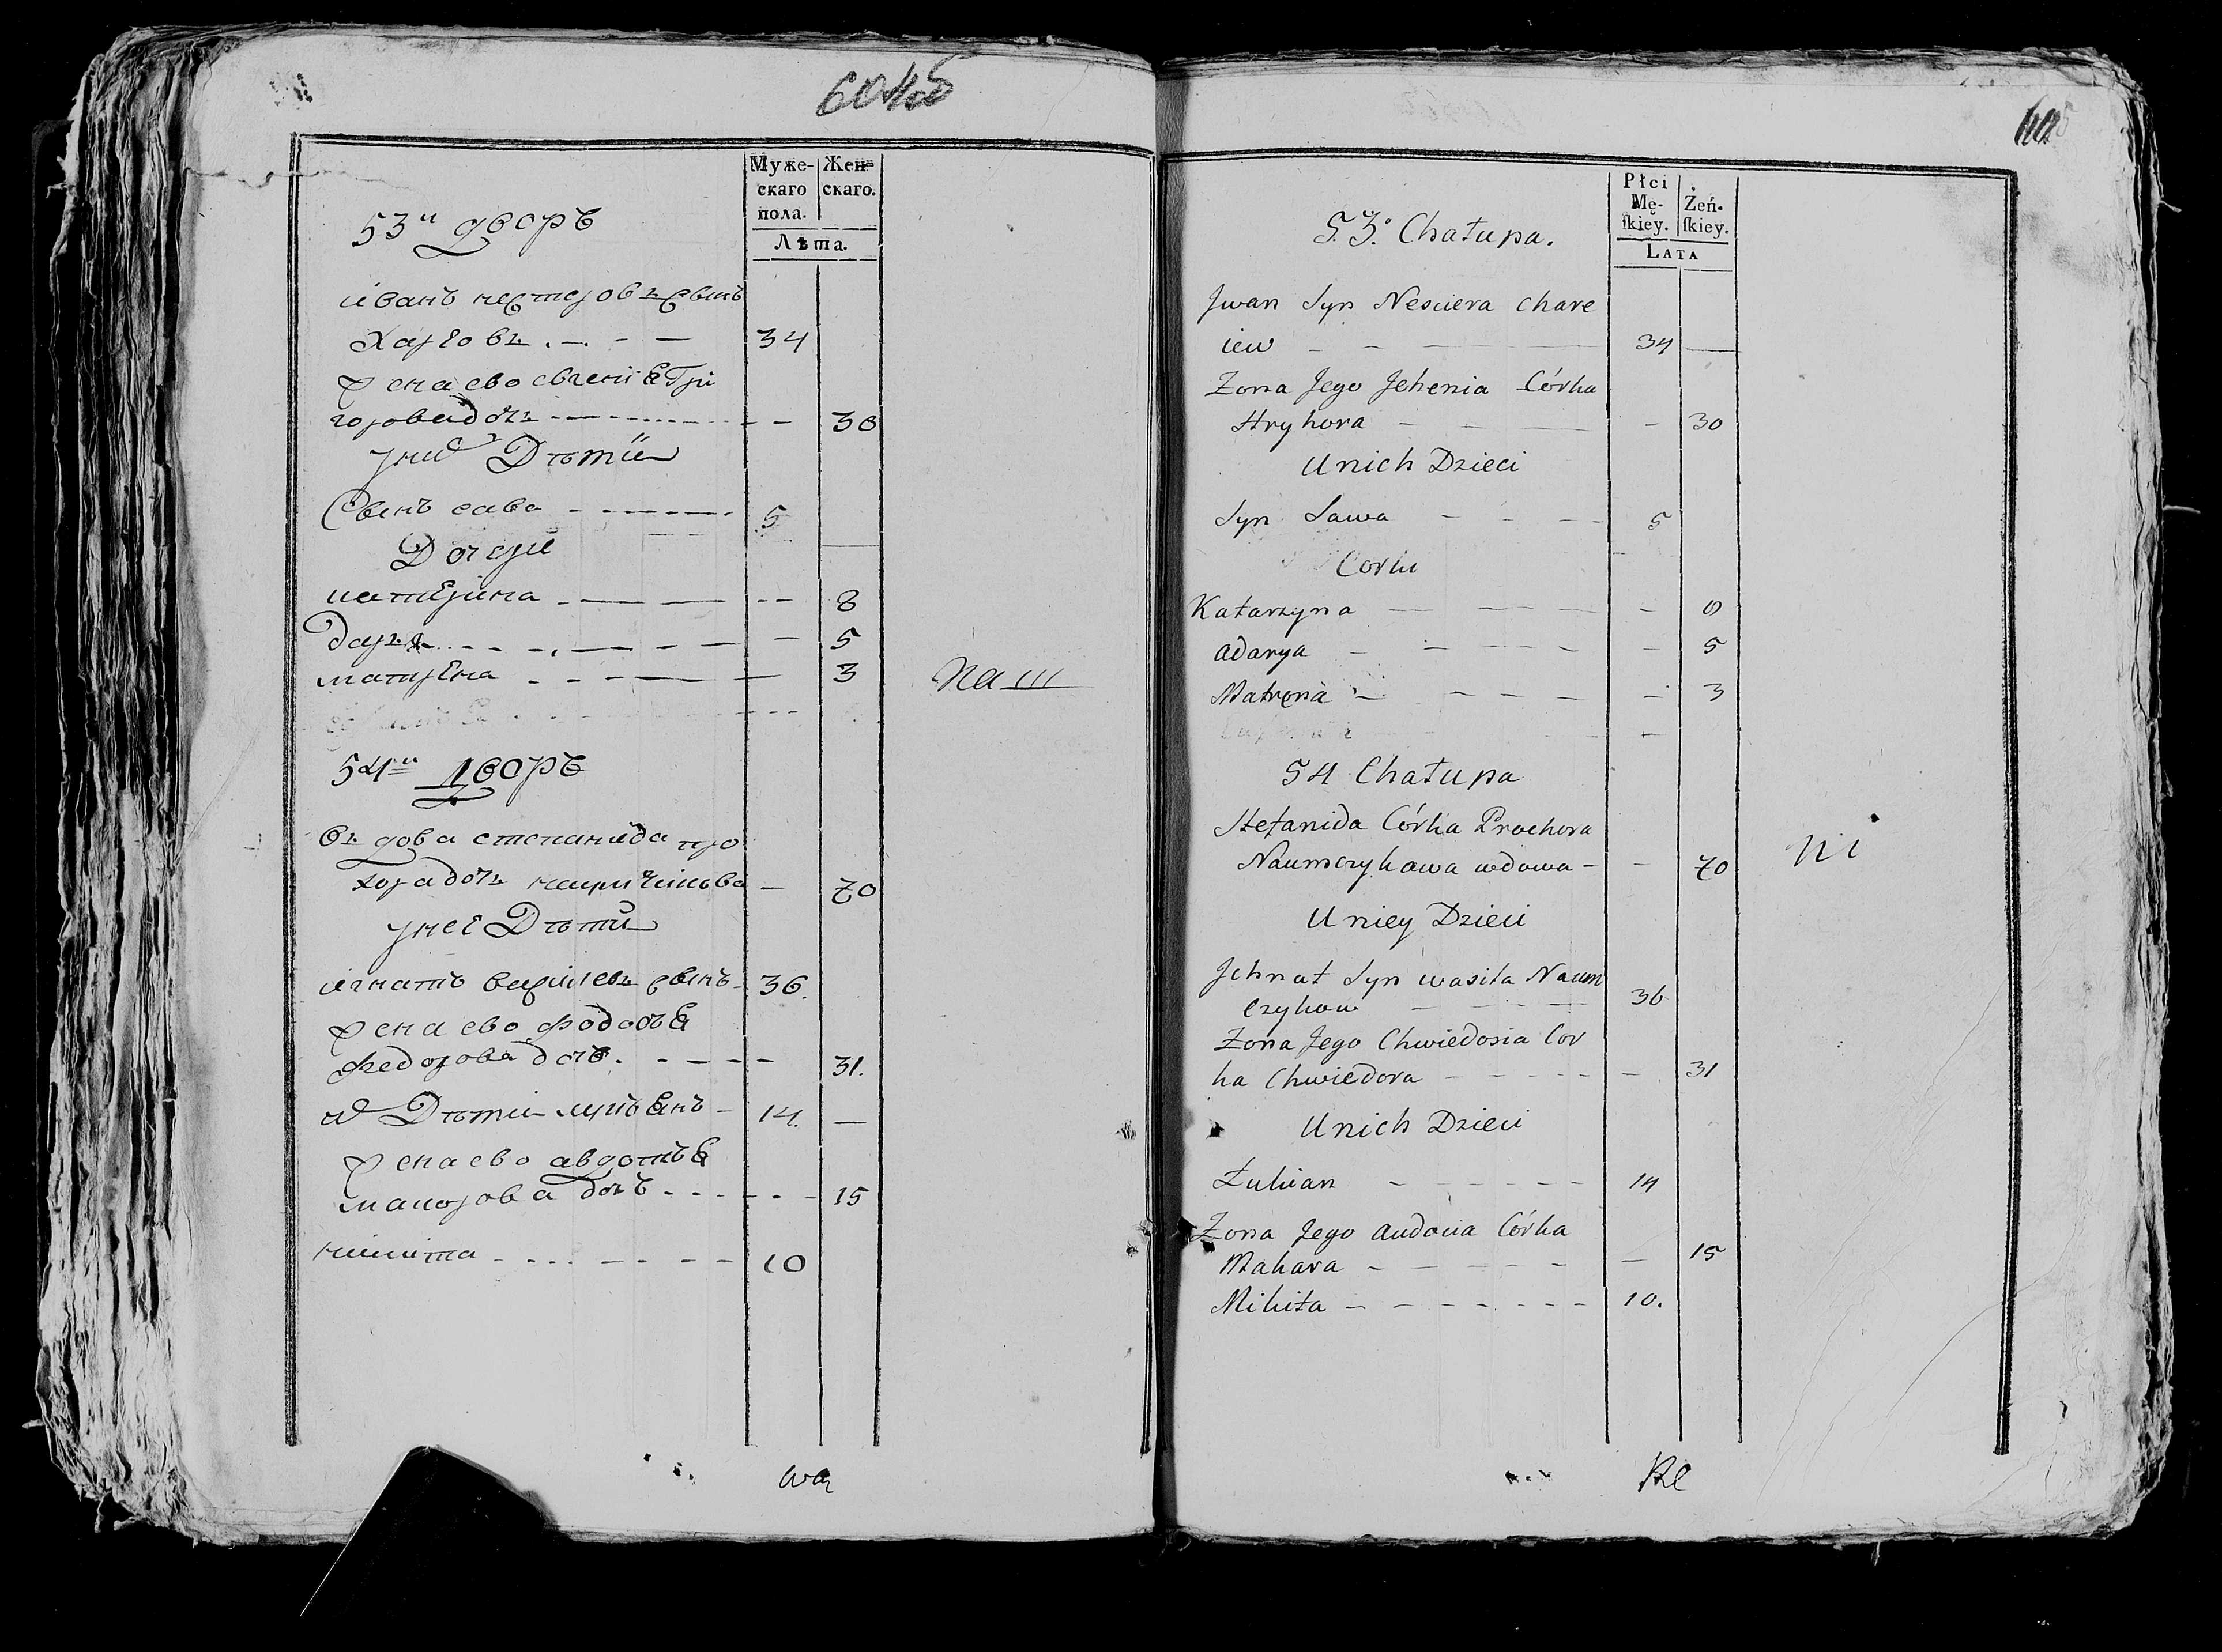 Муже-
скаго
пола.
Жен=
скаго.
Лѣта.
53й дворъ
иванъ нестеровъ сынъ
Харевъ 34
жена ево евгения Гри
горова дочь 30
у них Дѣти
Сынъ сава 5
Дочери
катерина 8
дарья 5
матрена 3
наш
54й дворъ
въдова степанида про
хора дочь наумчикова 70
у нее Дѣти
игнатъ васильевъ сынъ 36.
жена ево федосья
федорова дочь 31.
их Дѣти лукьянъ 14.
жена ево авдотья
макарова дочь 15
никита 10
Płci
Mę-
ſkiey.
Żeń-
ſkiey.
LATA
53. Chałupa.
Jwan Syn Nesciera Chare
iew 34
Zona Jego Jehenia Córka
Hryhora 30
U nich Dzieci
Syn Sawa 5
Corki
Katarzyna 8
Adarya 5
Matrona 3
54 Chałupa
Stefanida Córka Prochora
Naumczykowa wdowa 70
U niey Dzieci
Jchnat Syn wasila Naum
czykow 36
Zona Jego Chwiedosia Cor
ka Chwiedora 31
U nich Dzieci
Łukian 14
Zona Jego Audocia Córka
Makara 15
Mikita 10.